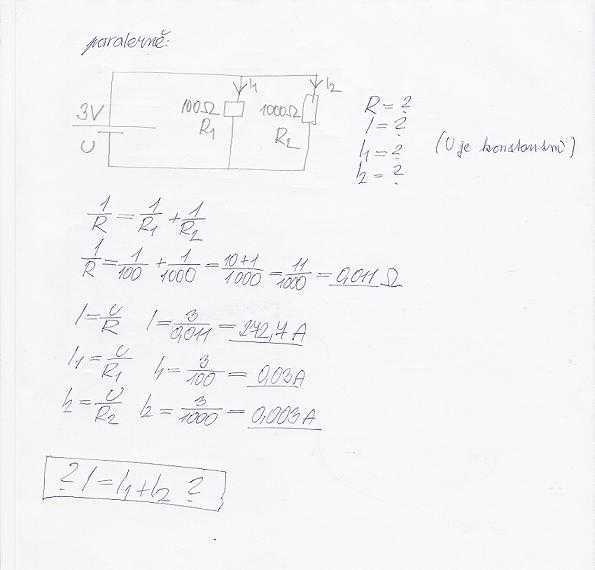 paralerně:
I₁ I₂
3V 100Ω 1000Ω R = ?
U R₁ R₂ I = ?
I₁ = ? (U je konstantní)
I₂ = ?
1/R = 1/R₁ + 1/R₂
1/R = 1/100 + 1/1000 = 10+1/1000 = 11/1000 = 0,011 Ω
I = U/R I = 3/0,011 = 272,7 A
I₁ = U/R₁ I₁ = 3/100 = 0,03A
I₂ = U/R₂ I₂ = 3/1000 = 0,003A
? I = I₁ + I₂ ?